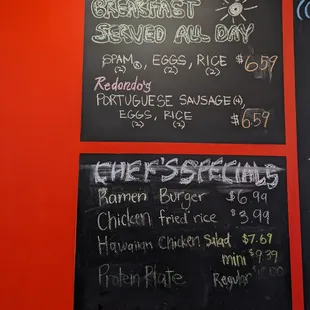 BREAKFAST
SERVED ALL DAY
SPAM®, EGGS, RICE $6.59
(2) (2) (2)
Redondo's
PORTUGUESE SAUSAGE (4),
EGGS, RICE $6.59
(2) (2)
CHEF'S SPECIALS
Ramen Burger $6.99
Chicken fried rice $3.99
Hawaiian Chicken Salad $7.69
mini $9.39
Protein Plate Regular